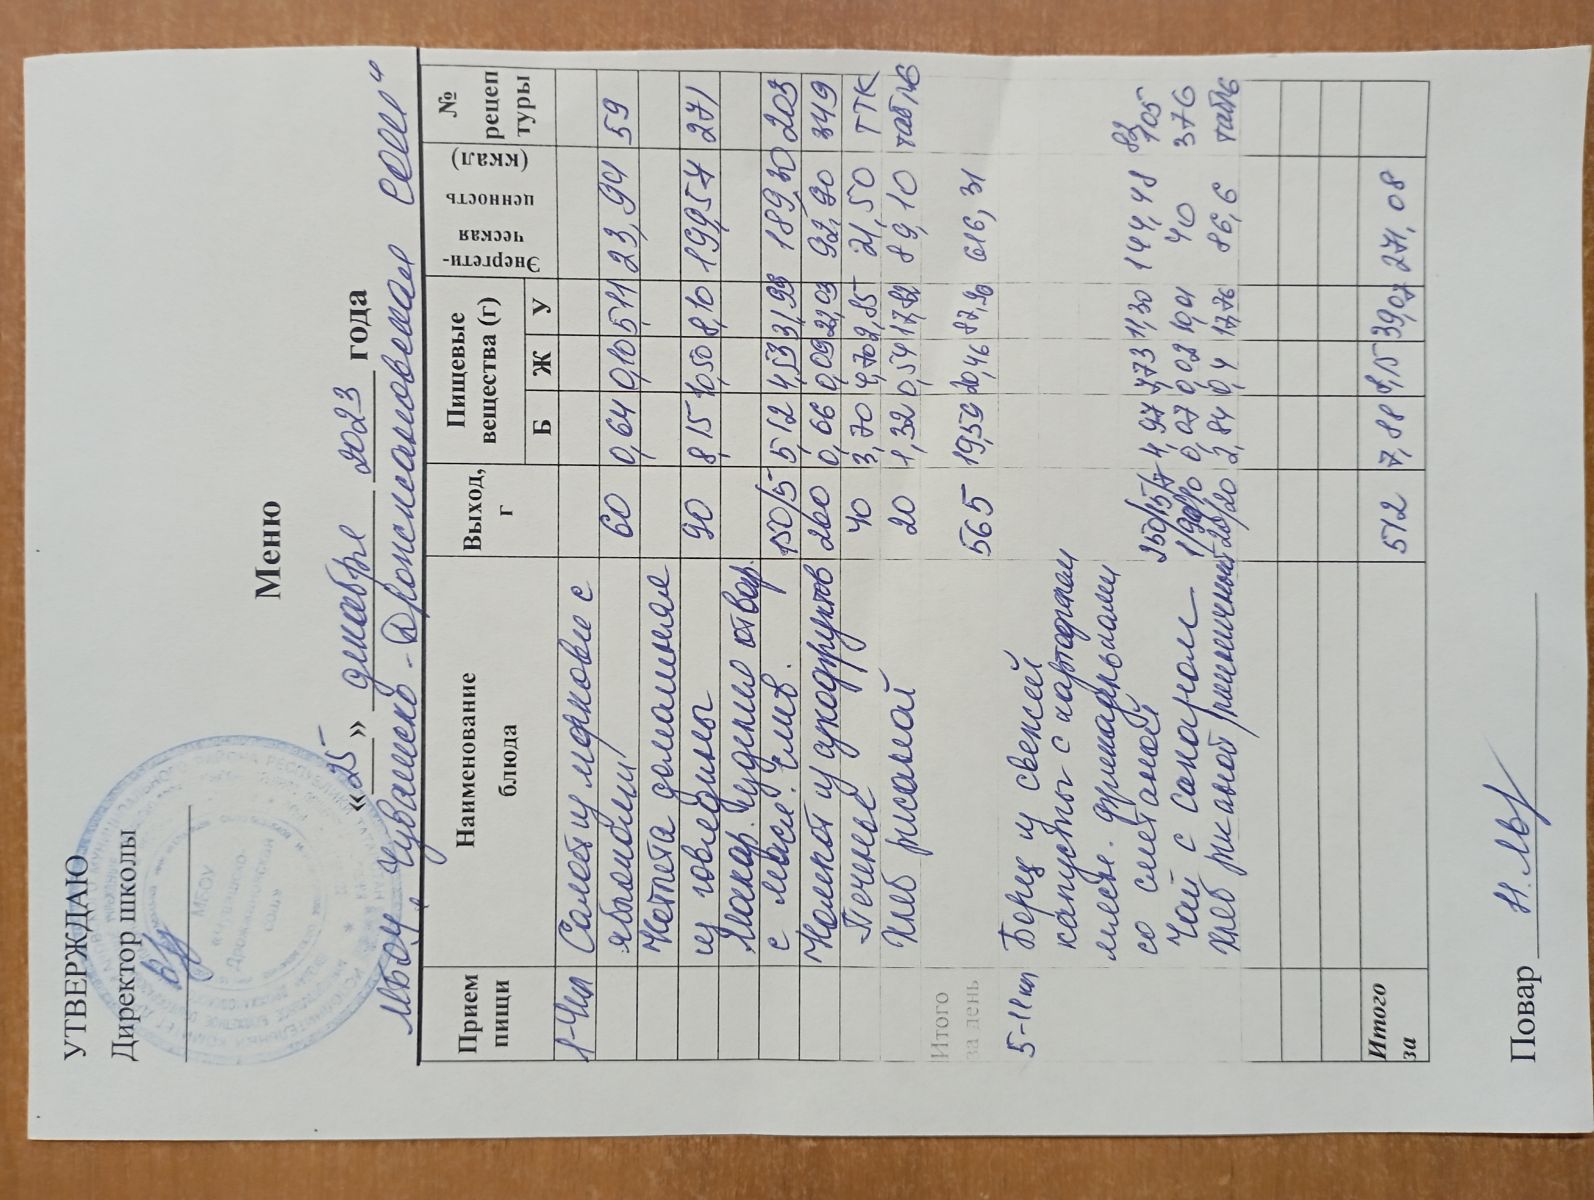 УТВЕРЖДАЮ
Директор школы
МБОУ
«Чувашско-
Дрожжановская
СОШ»
Меню
«25» декабря 2023 года
МБОУ „Чувашско-Дрожжановская СОШ“
Прием пищи Наименование блюда Выход, г Пищевые вещества (г) Б Ж У Энергетическая ценность (ккал) № рецептуры
1-4кл Салат из моркови с
яблоками 60 0,64 0,10 5,11 23,94 59
Котлета домашняя
из говядины 90 8,15 10,50 8,10 199,54 271
Макар. изделия отвар.
с масл. слив. 150/5 5,12 4,53 31,99 189,30 203
Компот из сухофруктов 200 0,66 0,09 22,03 92,90 349
Печенье 40 3,70 4,70 2,85 21,50 ТТК
Хлеб ржаной 20 1,32 0,54 17,82 89,10 таб№6
Итого
за день 565 19,59 20,46 87,90 616,31
5-11кл Борщ из свежей
капусты с картофелем
мясн. фрикадельками 82
со сметаной 250/15/7 4,97 7,73 11,30 144,48 105
Чай с сахаром 0,07 0,02 10,01 40 376
Хлеб ржаной/пшеничный 20/20 2,84 0,4 17,76 86,6 таб№6
Итого за 512 7,88 8,15 39,07 271,08
Повар